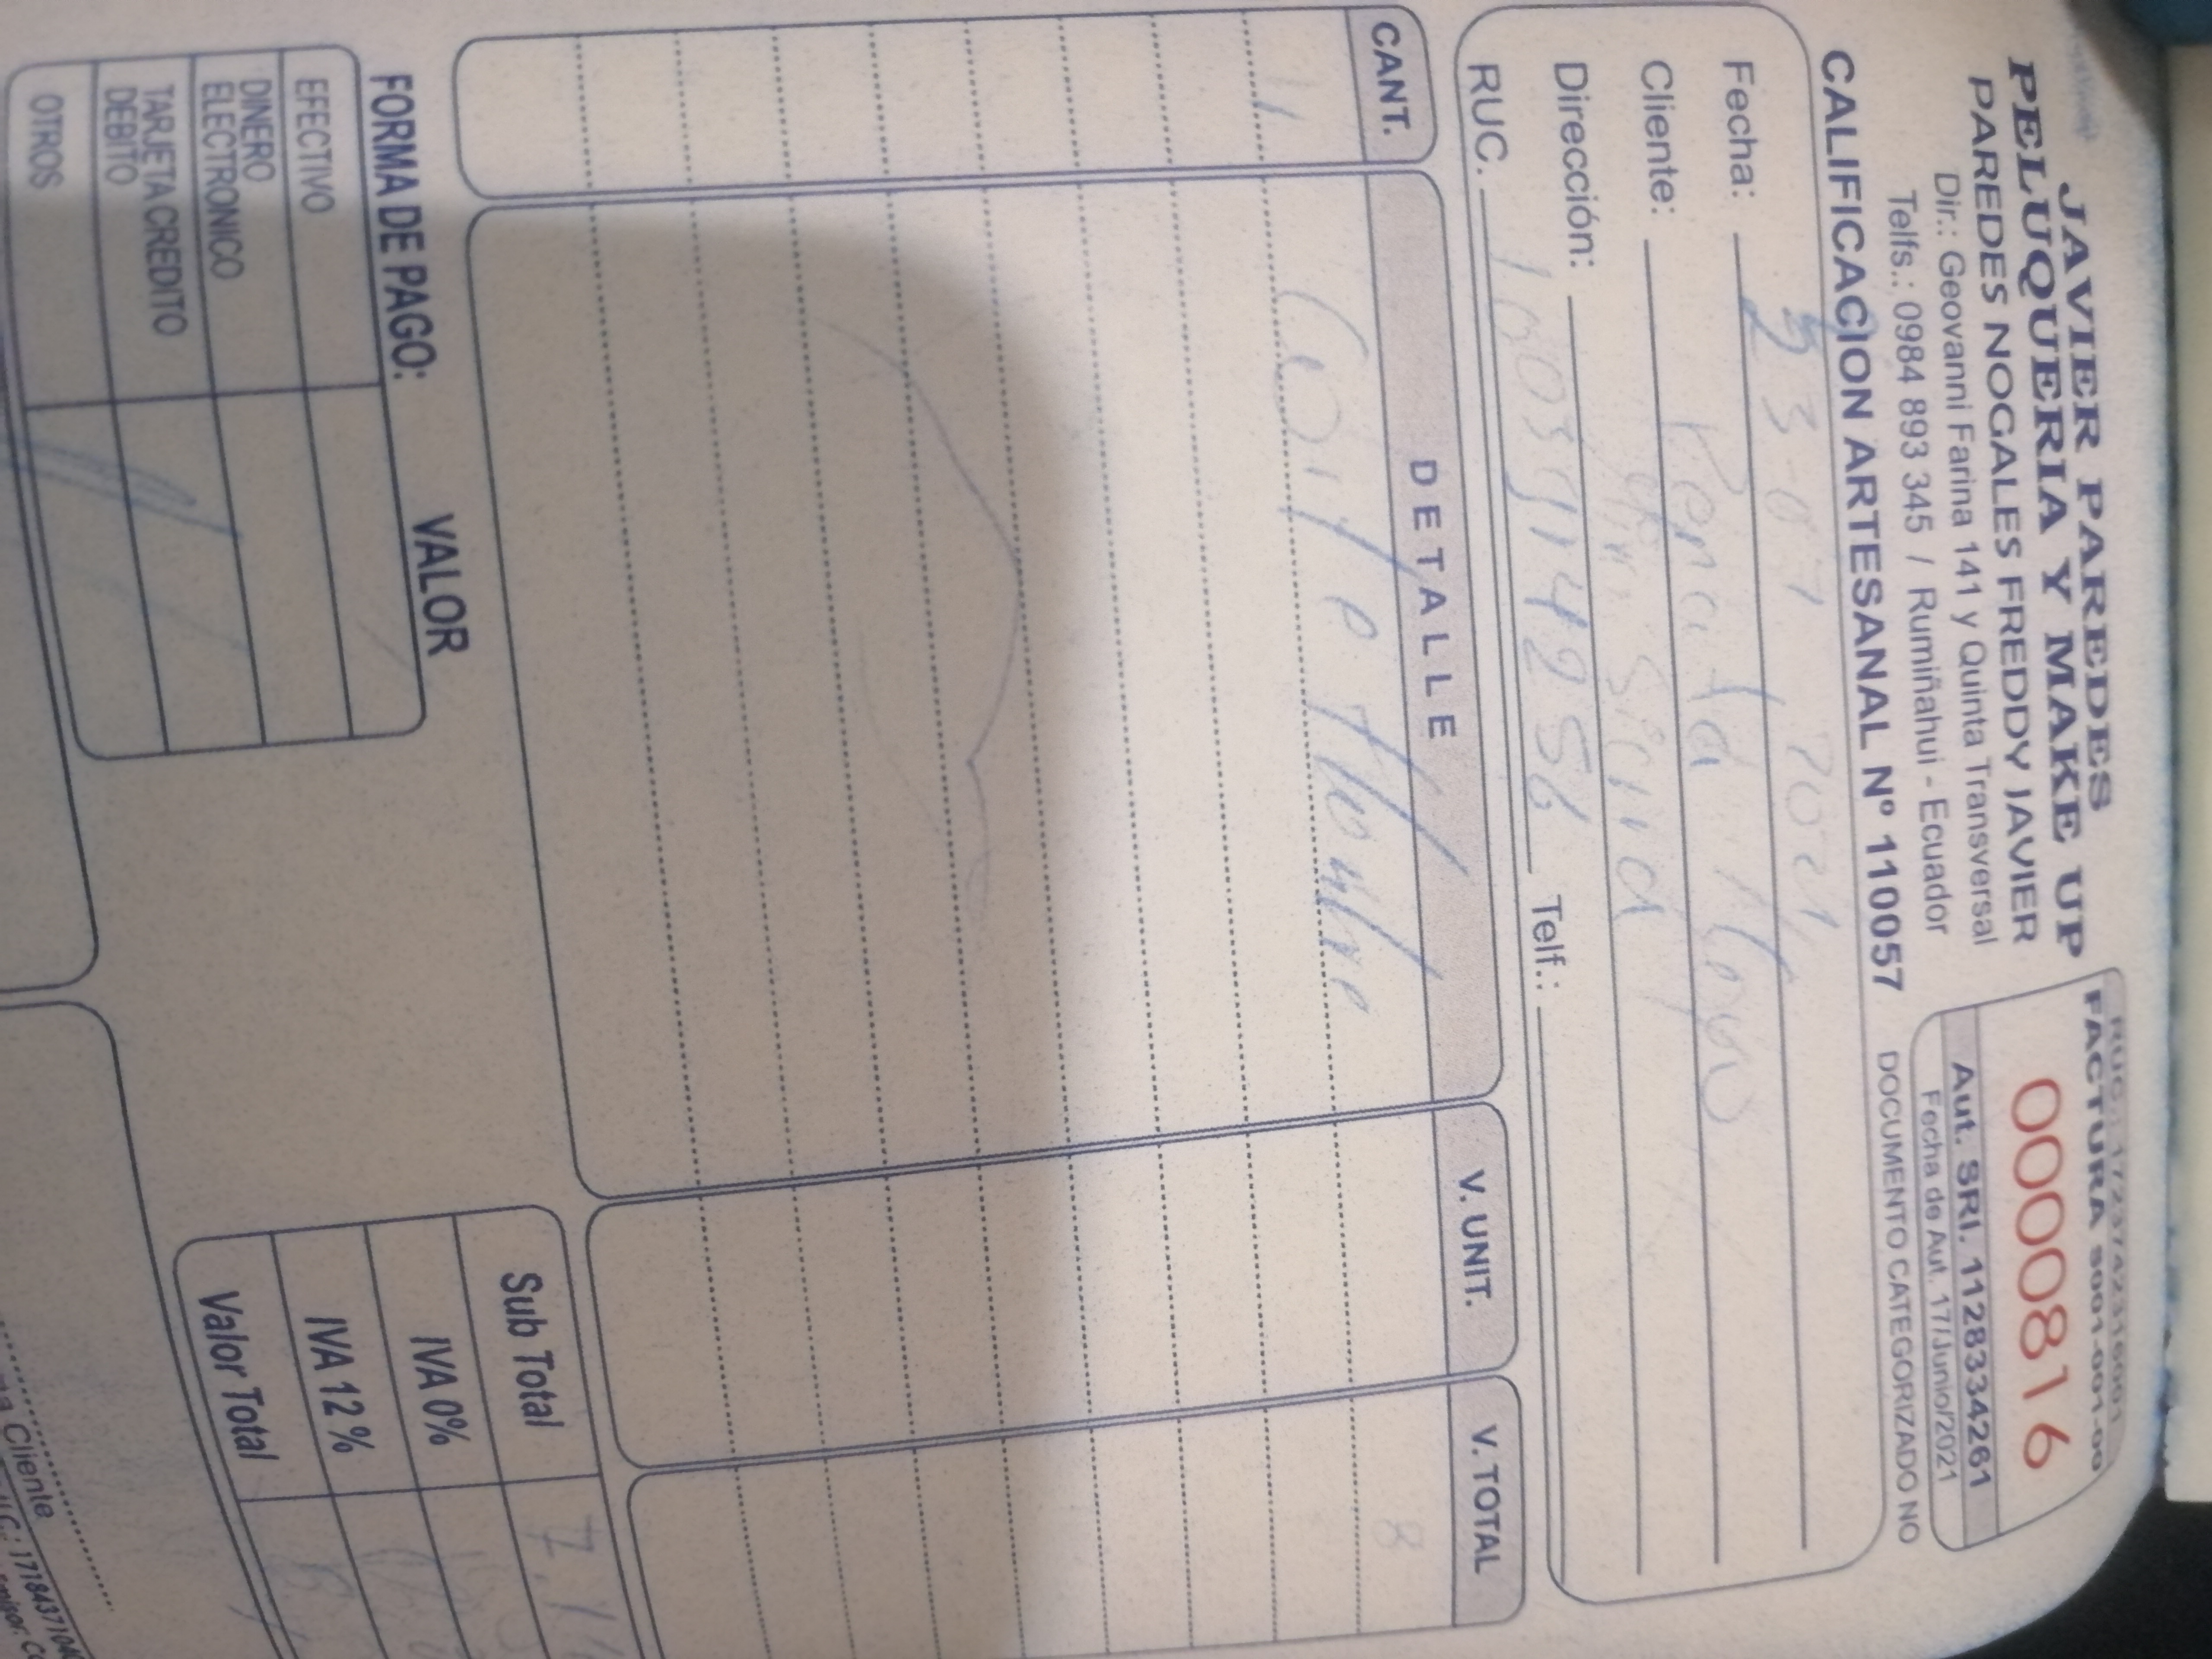 JAVIER PAREDES
PELUQUERIA Y MAKE UP
PAREDES NOGALES FREDDY JAVIER
Dir.: Geovanni Farina 141 y Quinta Transversal
Telfs.: 0984 893 345 / Rumiñahui - Ecuador
CALIFICACION ARTESANAL Nº 110057
FACTURA S001-001-00
0000816
Aut. SRI. 1128334261
Fecha de Aut. 17/Junio/2021
DOCUMENTO CATEGORIZADO NO
Fecha:
Cliente: Renata
Dirección:
RUC. Telf.:
CANT. DETALLE V. UNIT. V. TOTAL
1 Corte Hombre 8
FORMA DE PAGO: VALOR
EFECTIVO
DINERO ELECTRONICO
TARJETA CREDITO DEBITO
OTROS
Sub Total 7.14
IVA 0%
IVA 12 %
Valor Total
Cliente